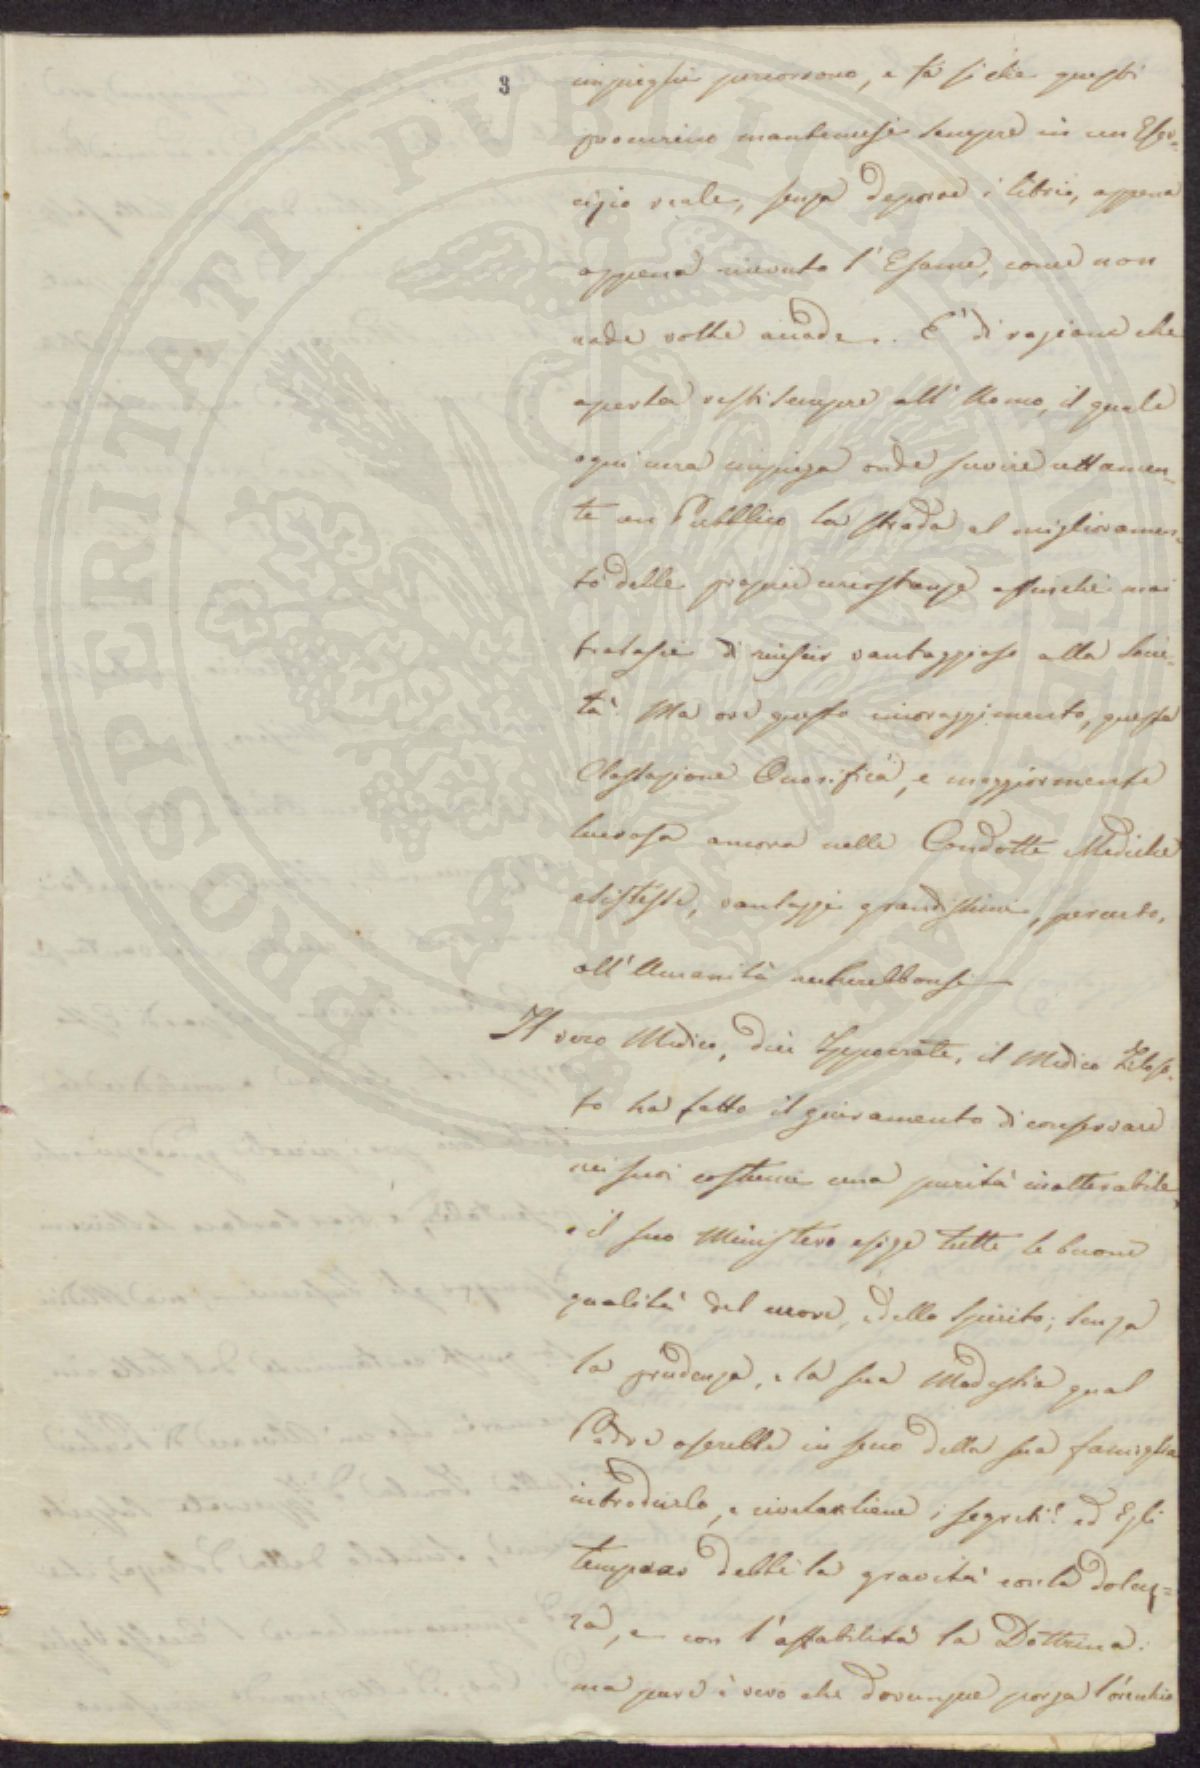 3
impieghi percorrono, e fa si che questi
procurino mantenersi sempre in un Eser=
cizio reale, senza deporre i libri, appena
appena ricevuto l'Esame, come non
rade volte accade. E' di ragione che
aperta resti sempre all'Uomo, il quale
ogni cura impiega onde servire rettamen=
te un Pubblico la strada al miglioramen=
to delle proprie circostanze affinchè mai
tralasci di riuscir vantaggioso alla Socie=
tà. Ma ove questo incoraggimento, questa
Onorifica, e maggiormente
lucrosa ancora nelle Condotte Mediche
esistesse, vantaggi grandissimi, per certo,
all'Umanità
Il vero Medico, dice Ippocrate, il Medico Filoso=
fo ha fatto il giuramento di conservare
nei suoi costumi una purità inalterabile,
e il suo Ministero esige tutte le buone
qualità del cuore, e dello spirito; senza
la prudenza, e la sua Modestia qual
Padre oserebbe in seno della sua famiglia
introdurlo, e i segreti? ed Egli
temprar debbe la gravità con la dolcez=
za, e con l'affabilità la Dottrina:
ma pure è vero che dovunque porga l'orecchio
PROSPERITATI PUBLICAE